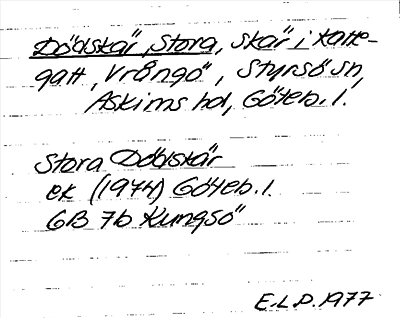 Dödskär, Stora, skär i Katte-
gatt, Vrångö, Styrsö sn,
Askims hd, Göteb. l.
Stora Dödskär
ek (1974) Göteb. l.
6B 7b Kungsö
E.L.P. 1977